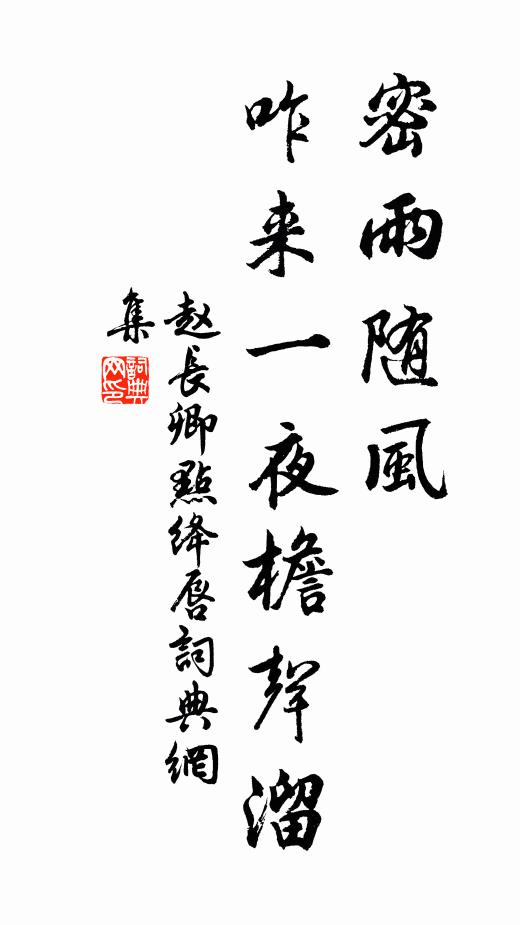 密雨随風
咋来一夜檐聲溜
赵長卿點绛唇詞典網
集
詞典
网印